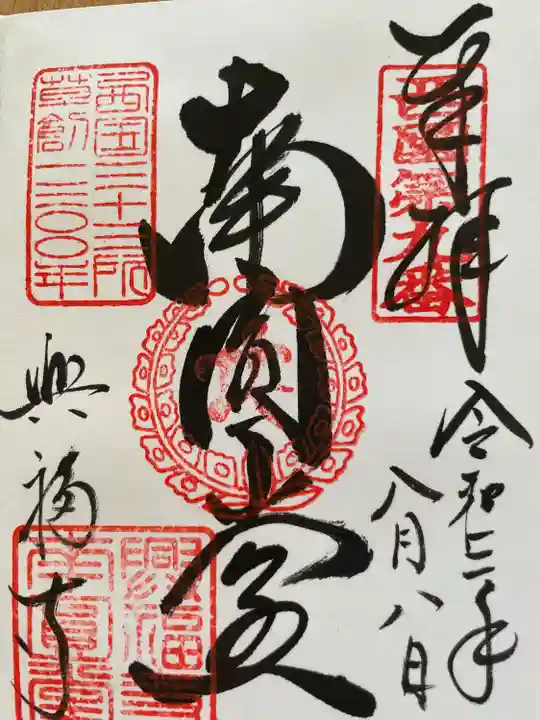 奉拝
西国第九番
令和二年
八月八日
南圓堂
西國三十三所
草創一三〇〇年
興福寺
興福